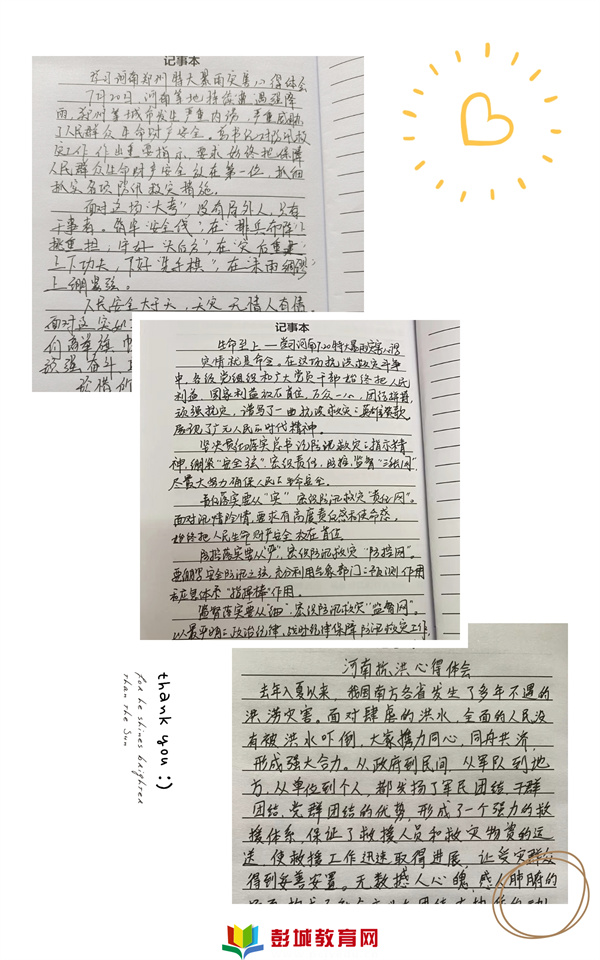 记事本
学习河南郑州特大暴雨灾害心得体会
7月20日,河南等地持续遭遇强降
雨,郑州等城市发生严重内涝,严重威胁
了人民群众生命财产安全。总书记对防汛救
灾工作作出重要指示,要求始终把保障
人民群众生命财产安全放在第一位,抓细
抓实各项防汛救灾措施。
面对这场“大考”,没有局外人,只有
干事者。筑牢“安全线”,在“排兵布阵”上
挑重担;守好“大后方”,在“灾后重建”
上下功夫,下好“先手棋”,在“未雨绸缪”
上绷紧弦。
人民安全大于天,天灾无情人有情。
面对这
们高举旗
顽强奋斗,
记事本
生命至上——学习河南7.20特大暴雨灾害心得
灾情就是命令。在这场抗洪救灾斗争
中,各级党组织和广大党员干部始终把人民
利益、国家利益放在首位,万众一心,团结拼搏,
顽强抗灾,谱写了一曲抗洪救灾的英雄赞歌
展现了广大人民的时代精神。
坚决贯彻落实总书记防汛救灾的指示精
神,绷紧“安全弦”密织责任、防控、监督“三张网”,
尽最大努力确保人民生命安全。
责任落实要从“实”,密织防汛救灾“责任网”。
面对汛情险情,要求有高度责任感和使命感,
始终把人民生命财产安全放在首位
防控落实要从“严”,密织防汛救灾“防控网”。
要绷紧安全防汛之弦,充分利用专家部门的预测作用
“指挥棒”作用。
监督落实要从“细”,密织防汛救灾“监督网”。
以最严明的政治纪律,战时纪律保障防汛救灾工作,
河南抗洪心得体会
去年入夏以来,我国南方各省发生了多年不遇的
洪涝灾害。面对肆虐的洪水,全面的人民没
有被洪水吓倒,大家携力同心,同舟共济,
形成强大合力。从政府到民间,从军队到地
方,从单位到个人,都发扬了军民团结、干群
团结,党群团结的优势,形成了一个强力的救
援体系,保证了救援人员和救灾物资的运
送,使救援工作迅速取得进展,让受灾群众
得到妥善安置。无数撼人心魄,感人肺腑的
thank you :)
for he shines brighter
than the sun
彭城教育网